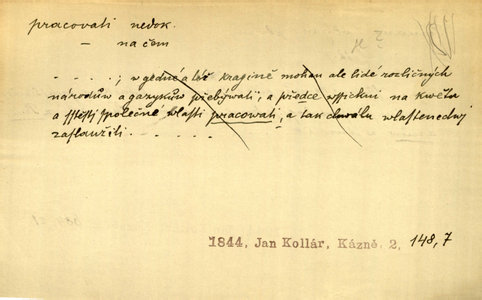 pracovati nedok.
— na čem
. . . . ; w gedné a téż kragině mohau ale lidé rozličných
národůw a gazykůw přebýwati, a předce wssickni na kwětu
a sstěstj společné wlasti pracowati, a tak chwálu wlastenců
zaslaužiti. . . . . .
1844, Jan Kollár, Kázně. 2, 148,7